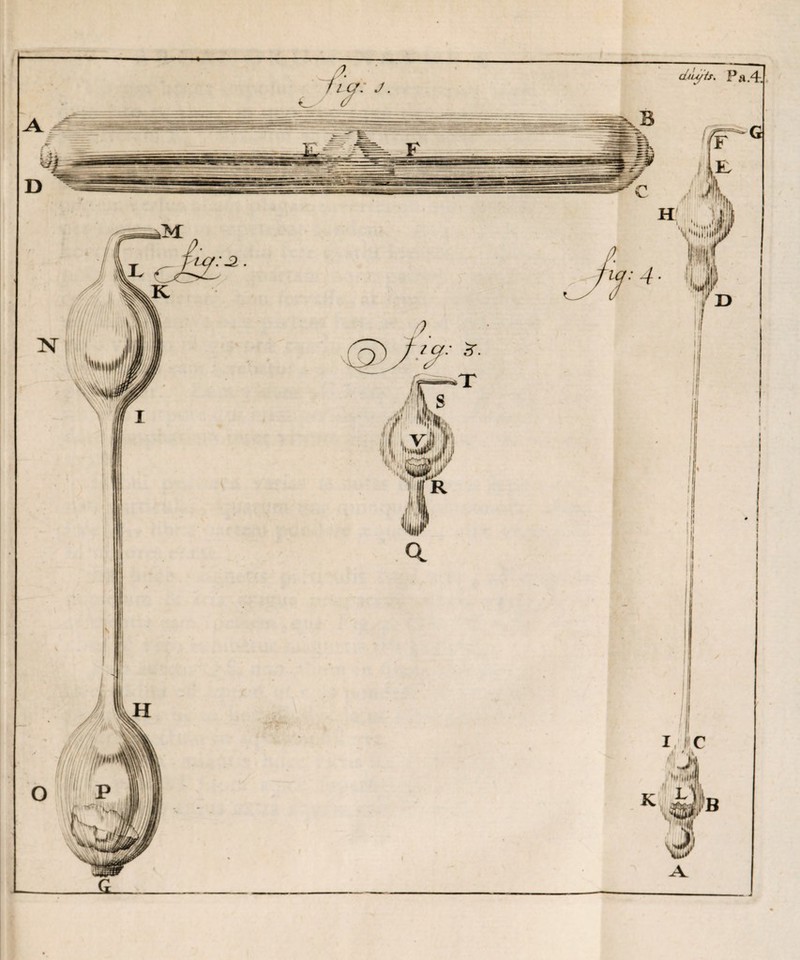 duyts. Pa.4.
fig: 1.
A
B
E
F
D
C
M
L
fig: 2.
K
N
I
H
O
P
G
fig: 3.
T
S
V
R
Q
fig: 4.
G
F
E
H
D
I
C
K
L
B
A